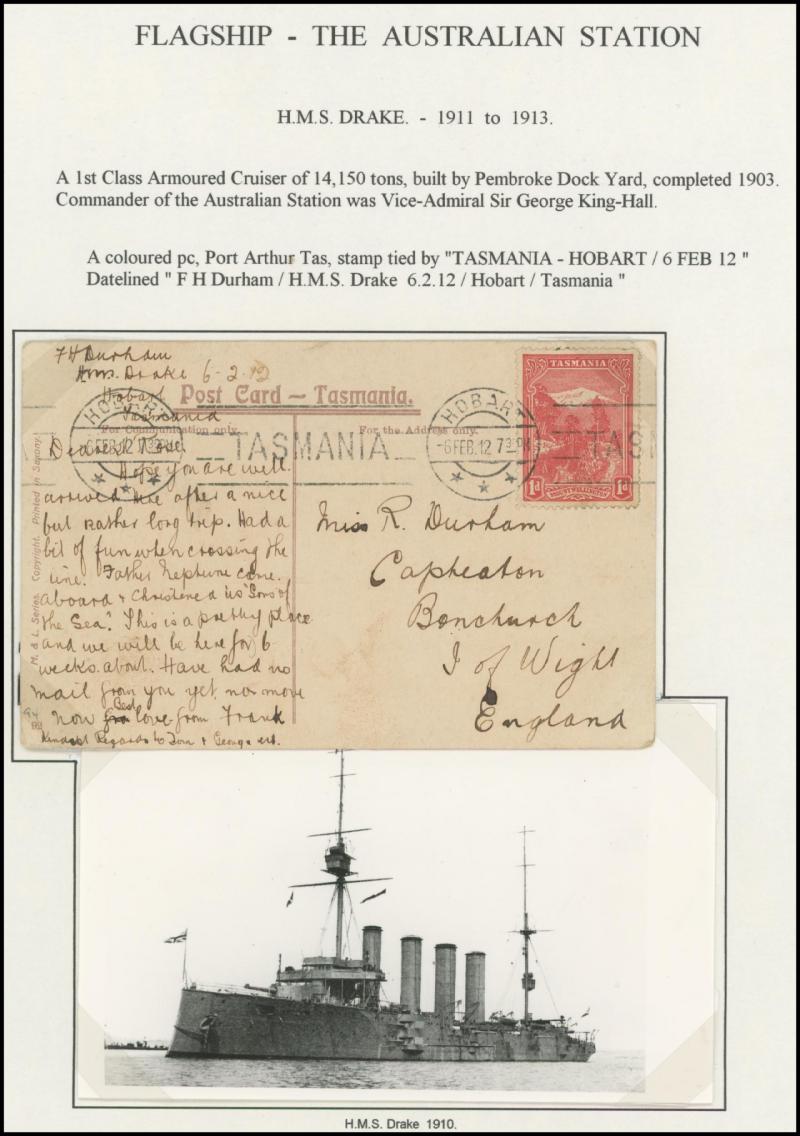 FLAGSHIP - THE AUSTRALIAN STATION
H.M.S. DRAKE. - 1911 to 1913.
A 1st Class Armoured Cruiser of 14,150 tons, built by Pembroke Dock Yard, completed 1903.
Commander of the Australian Station was Vice-Admiral Sir George King-Hall.
A coloured pc, Port Arthur Tas, stamp tied by "TASMANIA - HOBART / 6 FEB 12 "
Datelined " F H Durham / H.M.S. Drake 6.2.12 / Hobart / Tasmania "
F H Durham
H.M.S. Drake 6-2-12
Hobart
Tasmania
Post Card — Tasmania.
For Communication only.
For the Address only.
M. & L. Series. Copyright. Printed in Saxony.
HOBART
-6 FEB.12 7 30 PM
TASMANIA
HOBART
-6 FEB.12 7 30 PM
TAS
TASMANIA
1d 1d
Dearest
Hope you are well.
arrived here after a nice
but rather long trip. Had a
bit of fun when crossing the
line. Father Neptune came
aboard & Christened us "Sons of
the Sea". This is a pretty place
and we will be here for 6
weeks about. Have had no
mail from you yet, no more
now Best love from Frank
Kindest Regards to Tom & George
Miss R. Durham
Capheaton
Bonchurch
I of Wight
England
H.M.S. Drake 1910.